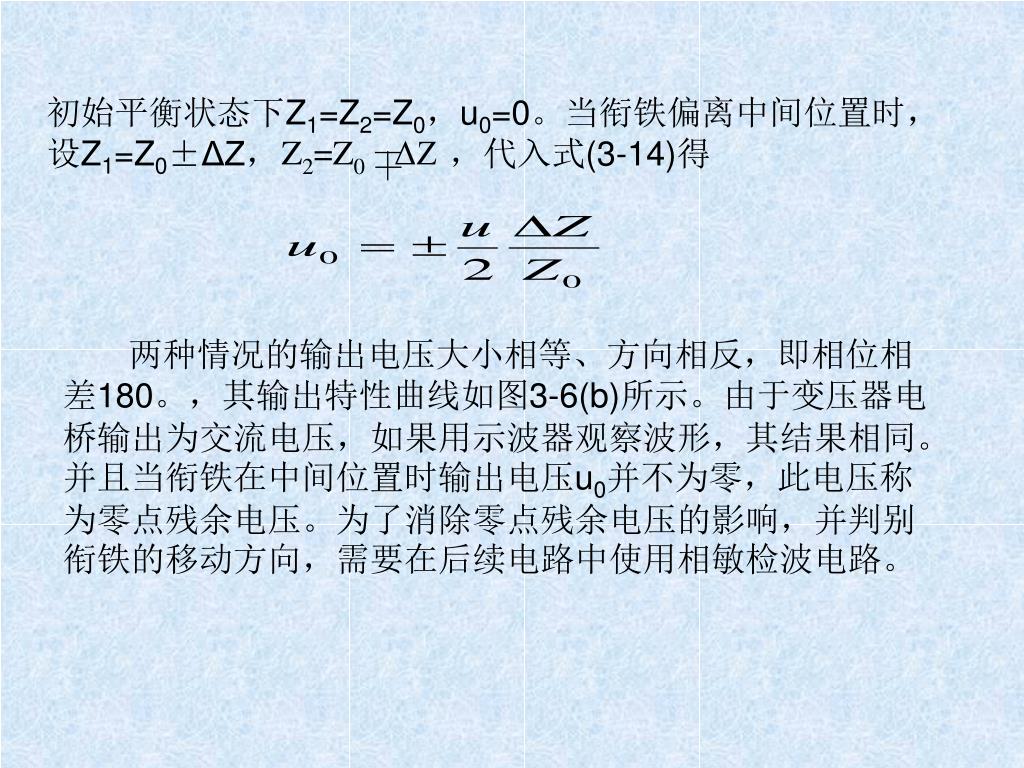 初始平衡状态下Z₁=Z₂=Z₀，u₀=0。当衔铁偏离中间位置时，
设Z₁=Z₀±ΔZ，Z₂=Z₀ ∓ΔZ ，代入式(3-14)得
u₀ = ± u/2 ΔZ/Z₀
两种情况的输出电压大小相等、方向相反，即相位相
差180。，其输出特性曲线如图3-6(b)所示。由于变压器电
桥输出为交流电压，如果用示波器观察波形，其结果相同。
并且当衔铁在中间位置时输出电压u₀并不为零，此电压称
为零点残余电压。为了消除零点残余电压的影响，并判别
衔铁的移动方向，需要在后续电路中使用相敏检波电路。